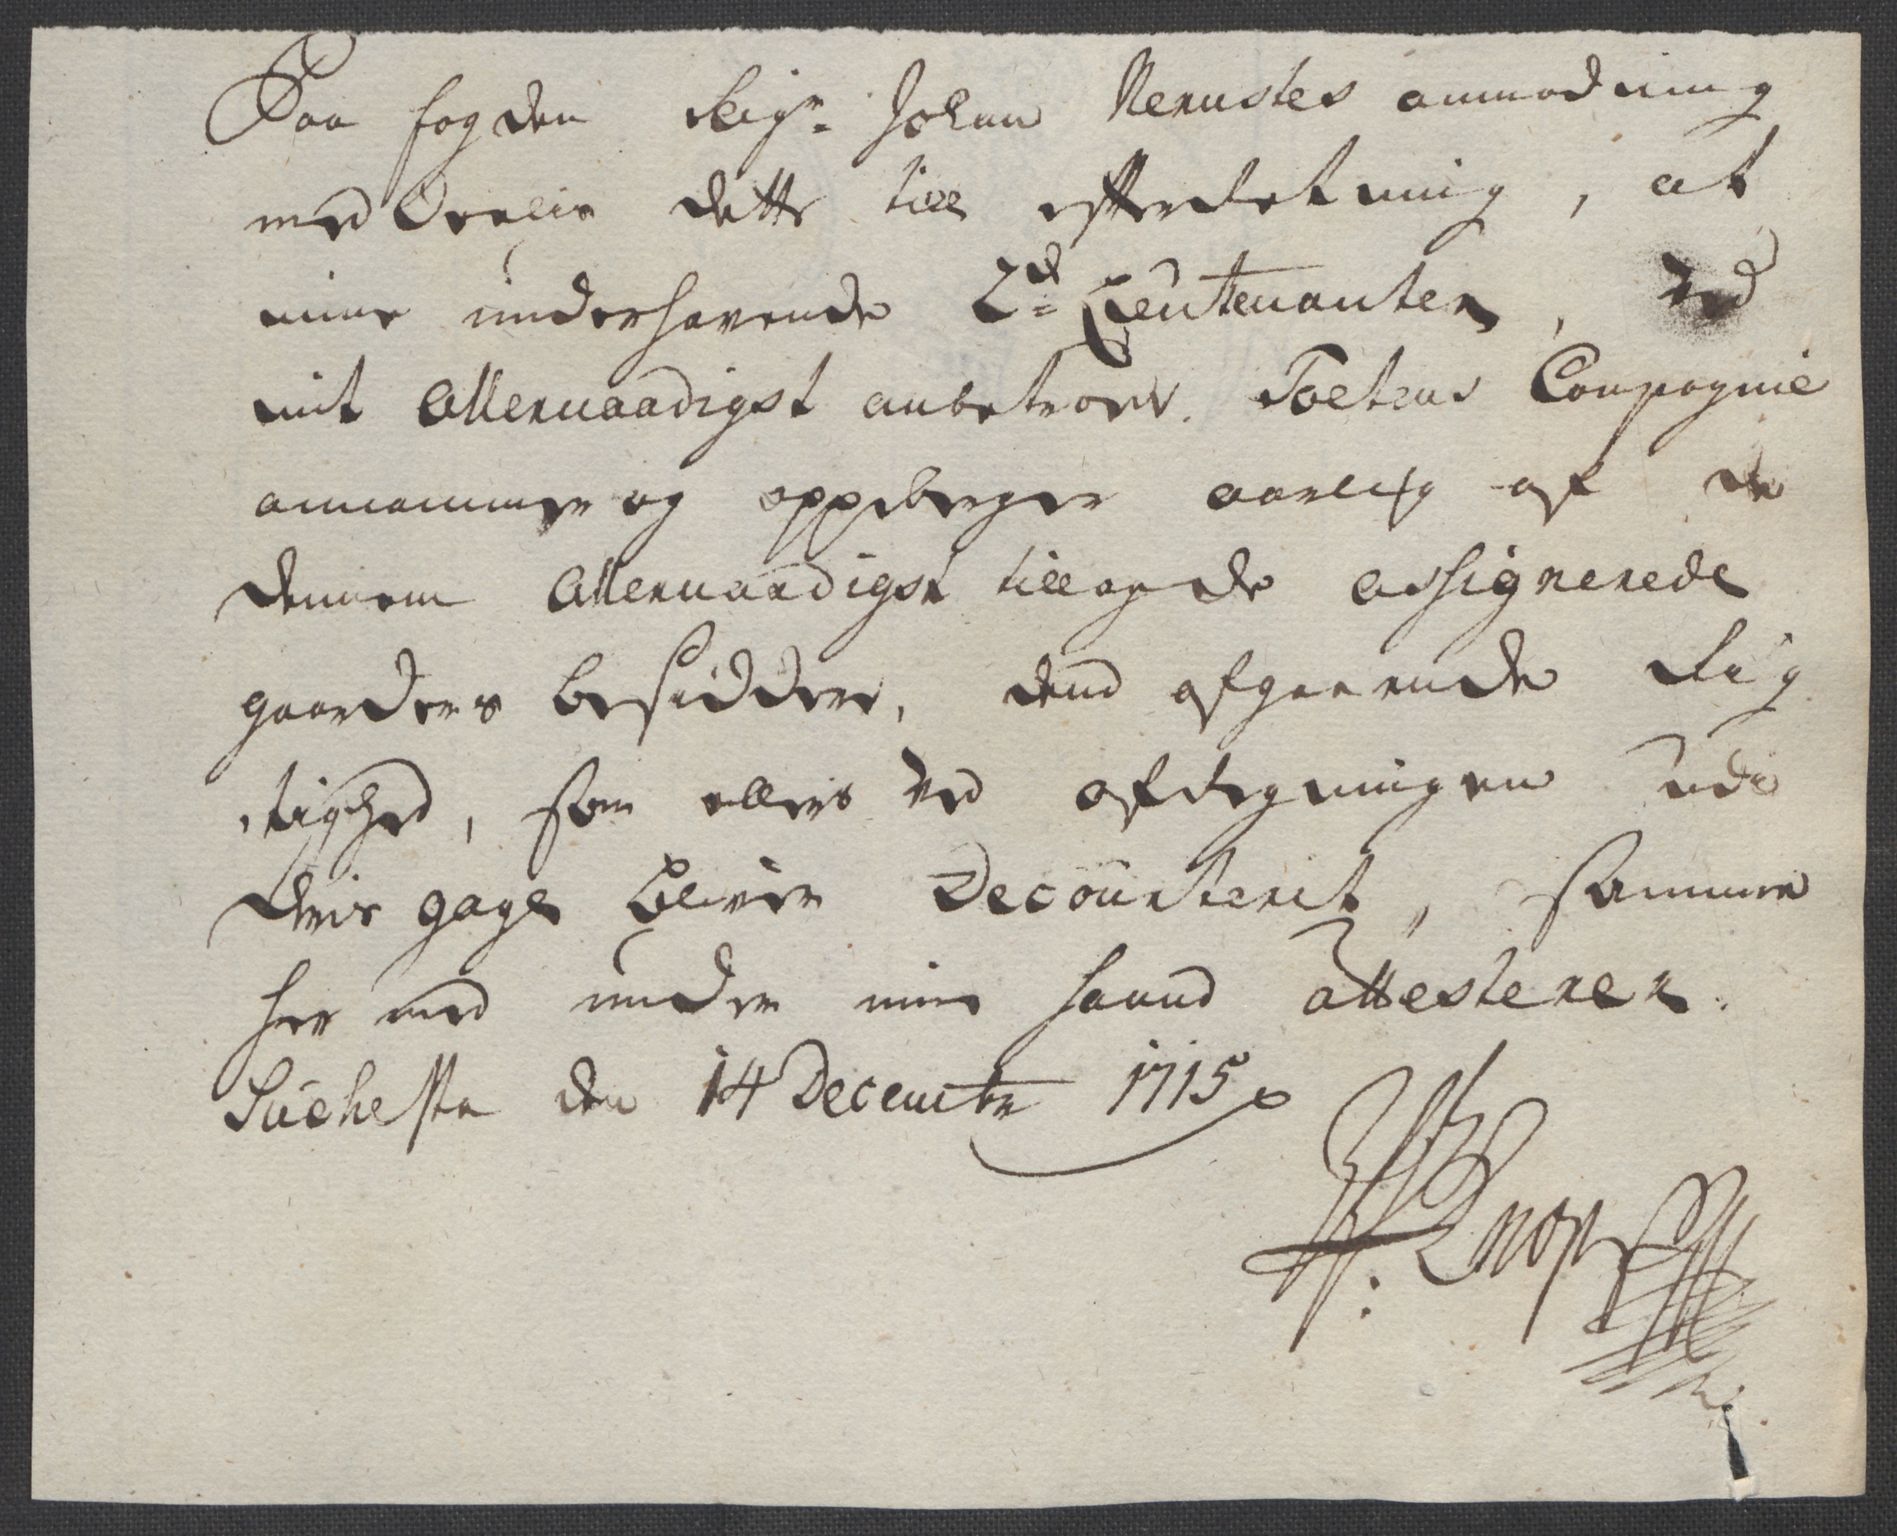 Paa fogden Seigr. Johan Nernstes anmodning
meddeelis dette till efterretning, at
mine underhavende 2de Lieutenanter, ved
mit Allernaadigst anbetroede Compagnie
annammer og oppeberger aarlig af de
dennem Allernaadigst tillagde assignerede
gaarders besiddere, dend afgaaende Rig
tighed, som ellers ved afregningen udi
deris gage bliver Decourterit, samme
her med under min haand attesterer.
den 14 Decembr 1715
Knopff